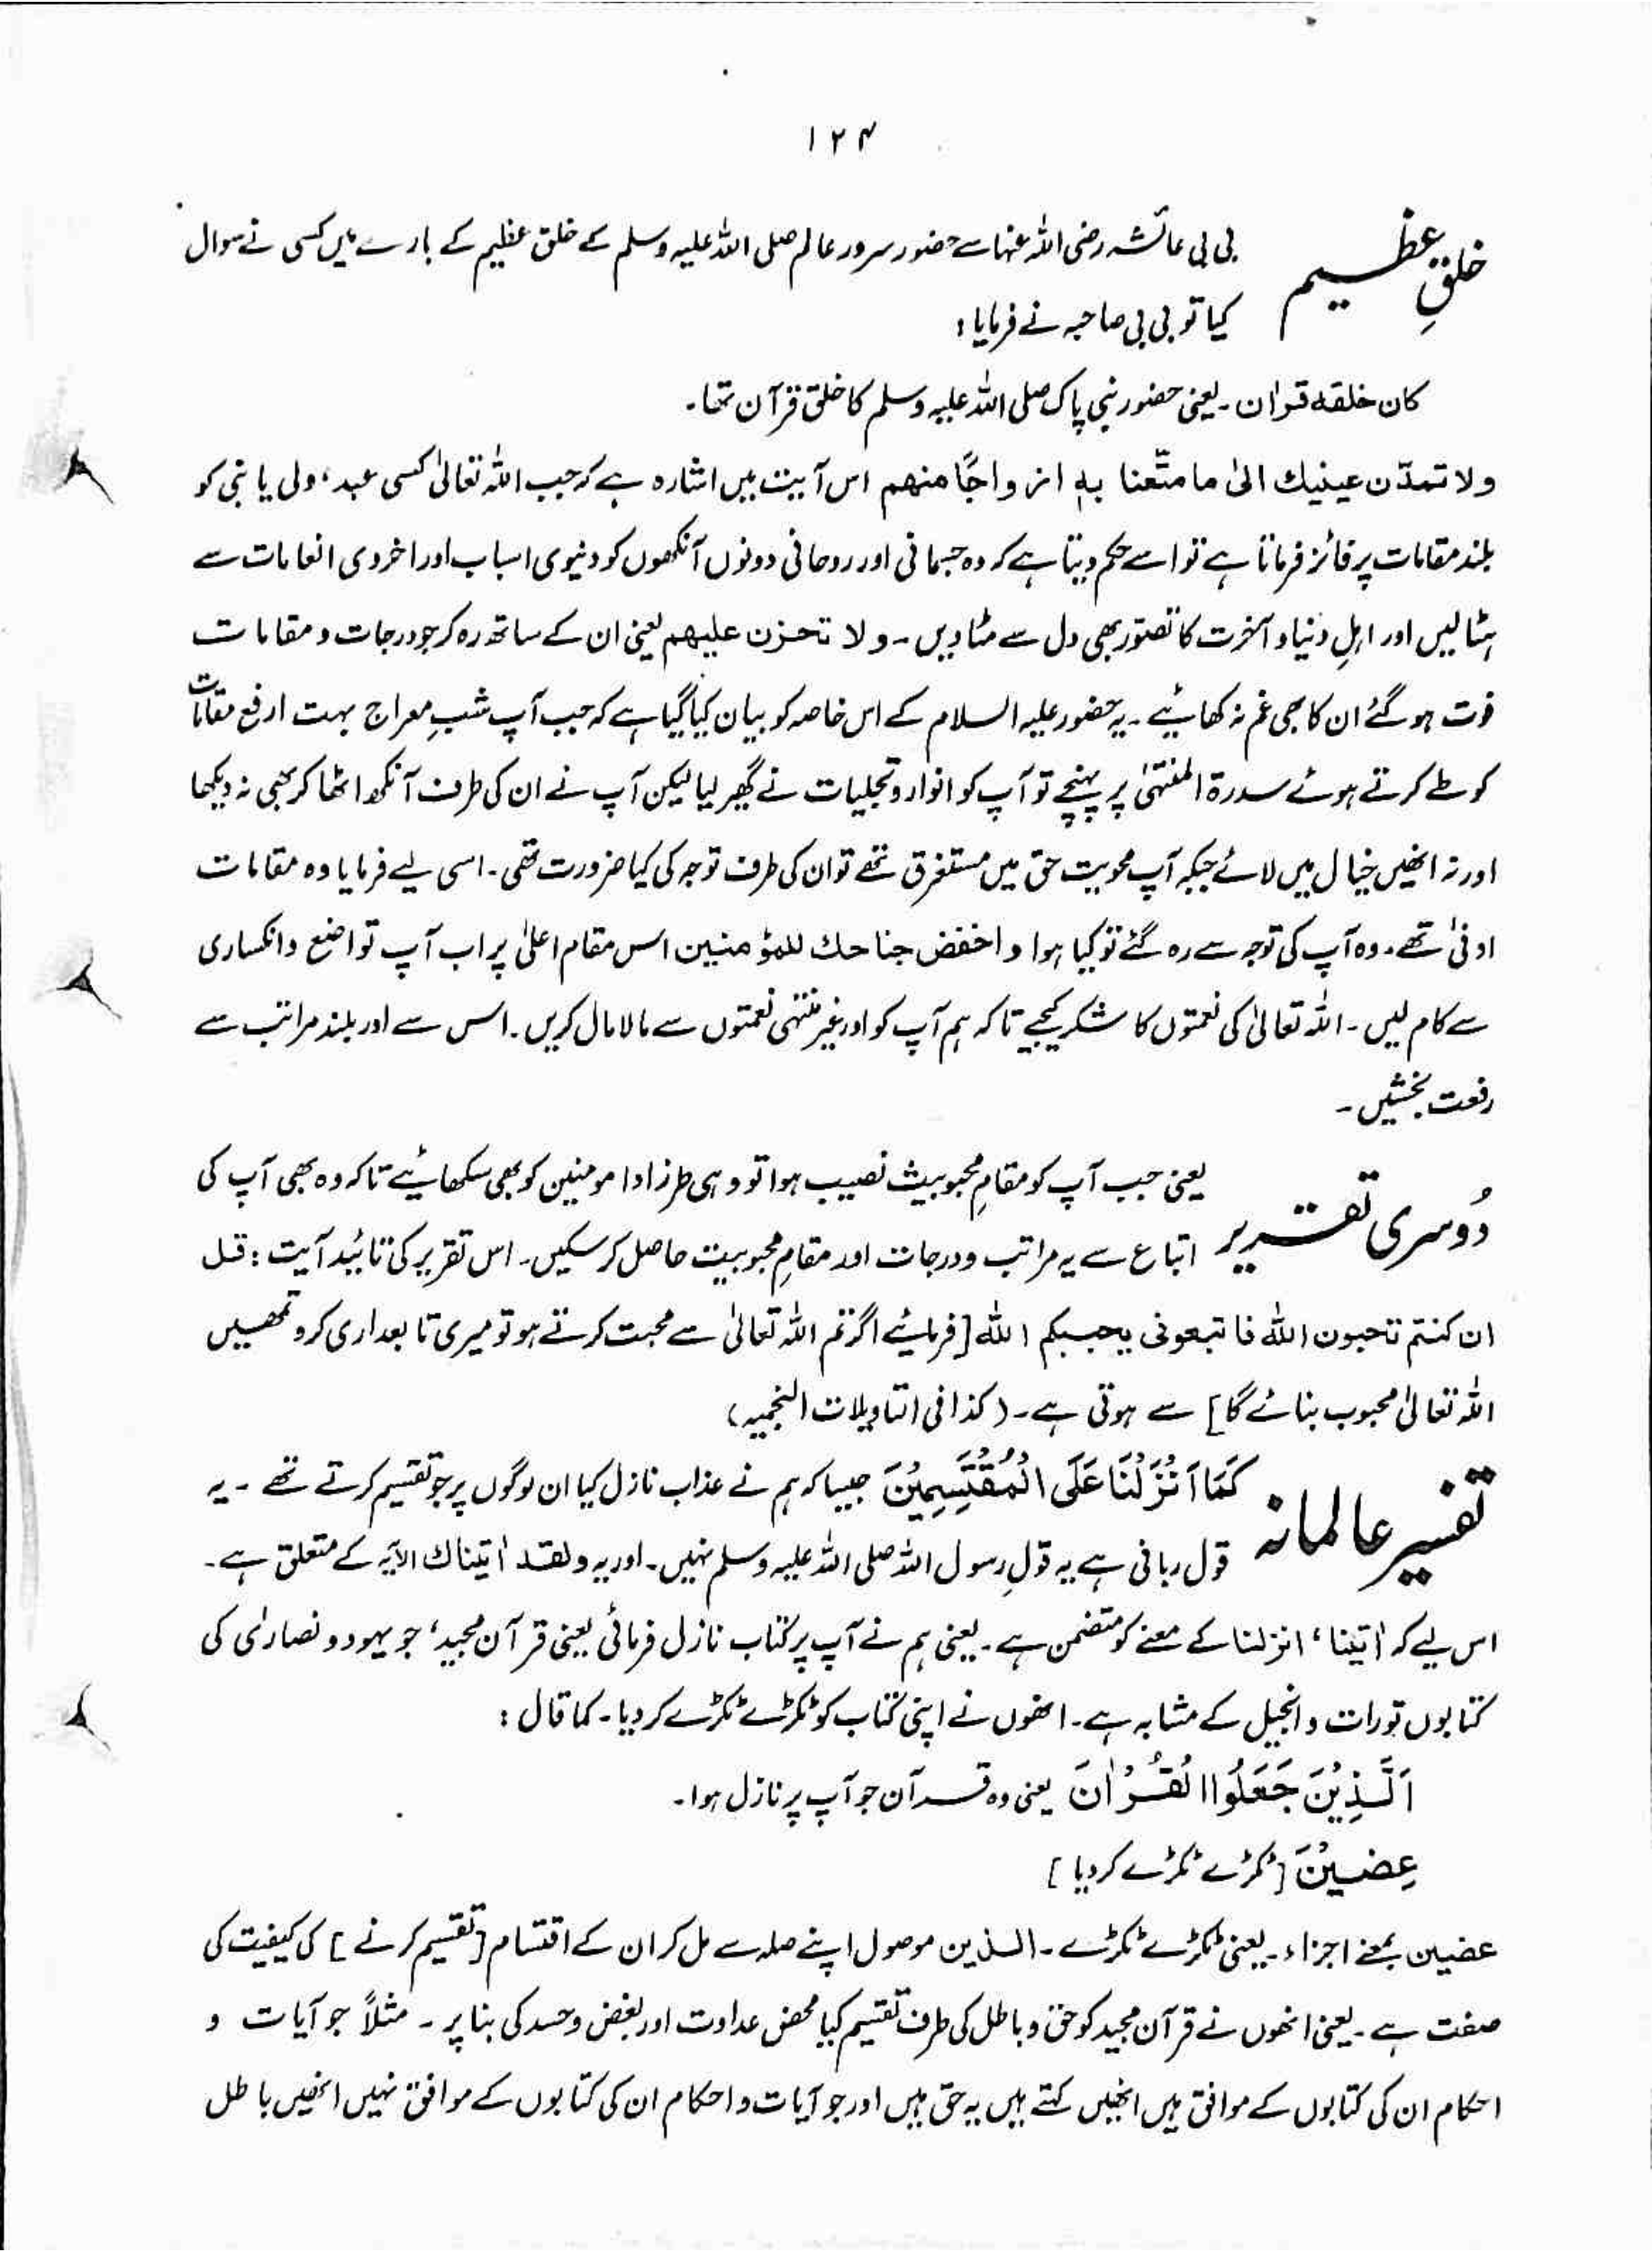 ۱۲۴
خلقِ عظیم
بی بی عائشہ رضی اللہ عنہا سے حضور سرور عالم صلی اللہ علیہ وسلم کے خلق عظیم کے بارے میں کسی نے سوال
کیا تو بی بی صاحبہ نے فرمایا:
کان خلقہ قران ۔ یعنی حضور نبی پاک صلی اللہ علیہ وسلم کا خلق قرآن تھا۔
ولا تمدّن عینیك الیٰ ما متّعنا بہٖ ازواجًا منھم اس آیت میں اشارہ ہے کہ جب اللہ تعالیٰ کسی عبد، ولی یا نبی کو
بلند مقامات پر فائز فرماتا ہے تو اسے حکم دیتا ہے کہ وہ جسمانی اور روحانی دونوں آنکھوں کو دنیوی اسباب اور اخروی انعامات سے
ہٹا لیں اور اہلِ دنیا و آخرت کا تصوّر بھی دل سے مٹا دیں ۔ ولا تحزن علیھم یعنی ان کے ساتھ رہ کر جو درجات و مقامات
فوت ہو گئے ان کا بھی غم نہ کھائیے ۔ یہ حضور علیہ السلام کے اس خاصہ کو بیان کیا گیا ہے کہ جب آپ شبِ معراج بہت ارفع مقامات
کو طے کرتے ہوئے سدرۃ المنتہیٰ پر پہنچے تو آپ کو انوار و تجلیات نے گھیر لیا لیکن آپ نے ان کی طرف آنکھ اٹھا کر بھی نہ دیکھا
اور نہ انھیں خیال میں لائے جبکہ آپ محویت حق میں مستغرق تھے تو ان کی طرف توجہ کی کیا ضرورت تھی ۔ اسی لیے فرمایا وہ مقامات
ادنیٰ تھے ۔ وہ آپ کی توجہ سے رہ گئے تو کیا ہوا و اخفض جناحك للمؤمنین اس مقام اعلیٰ پر اب آپ تواضع و انکساری
سے کام لیں ۔ اللہ تعالیٰ کی نعمتوں کا شکر کیجیے تاکہ ہم آپ کو اور غیر منتہی نعمتوں سے مالا مال کریں ۔ اس سے اور بلند مراتب سے
رفعت بخشیں ۔
دُوسری تقریر
یعنی جب آپ کو مقامِ محبوبیت نصیب ہوا تو وہی طرز ادا مومنین کو بھی سکھائیے تاکہ وہ بھی آپ کی
اتباع سے یہ مراتب و درجات اور مقامِ محبوبیت حاصل کر سکیں ۔ اس تقریر کی تائید آیت : قل
ان کنتم تحبون اللہ فاتبعونی یحببکم اللہ [ فرمائیے اگر تم اللہ تعالیٰ سے محبت کرتے ہو تو میری تابعداری کرو تمھیں
اللہ تعالیٰ محبوب بنائے گا ] سے ہوتی ہے ۔ ( کذا فی التاویلات النجمیہ )
تفسیر عالمانہ
كَمَا اَنْزَلْنَا عَلَى الْمُقْتَسِمِيْنَ جیسا کہ ہم نے عذاب نازل کیا ان لوگوں پر جو تقسیم کرتے تھے ۔ یہ
قول ربانی ہے یہ قولِ رسول اللہ صلی اللہ علیہ وسلم نہیں ۔ اور یہ ولقد اٰتیناك الآیہ کے متعلق ہے ۔
اس لیے کہ اٰتینا ، انزلنا کے معنے کو متضمن ہے ۔ یعنی ہم نے آپ پر کتاب نازل فرمائی یعنی قرآن مجید ، جو یہود و نصارٰی کی
کتابوں تورات و انجیل کے مشابہ ہے ۔ انھوں نے اپنی کتاب کو ٹکڑے ٹکڑے کر دیا ۔ کما قال :
اَلَّذِيْنَ جَعَلُوا الْقُرْاٰنَ یعنی وہ قرآن جو آپ پر نازل ہوا ۔
عِضِيْنَ [ ٹکڑے ٹکڑے کر دیا ]
عضین بمعنے اجزاء ۔ یعنی ٹکڑے ٹکڑے ۔ الذین موصول اپنے صلہ سے مل کر ان کے اقتسام [ تقسیم کرنے ] کی کیفیت کی
صفت ہے ۔ یعنی انھوں نے قرآن مجید کو حق و باطل کی طرف تقسیم کیا محض عداوت اور بغض و حسد کی بنا پر ۔ مثلاً جو آیات و
احکام ان کی کتابوں کے موافق ہیں انھیں کہتے ہیں یہ حق ہیں اور جو آیات و احکام ان کی کتابوں کے موافق نہیں انھیں باطل